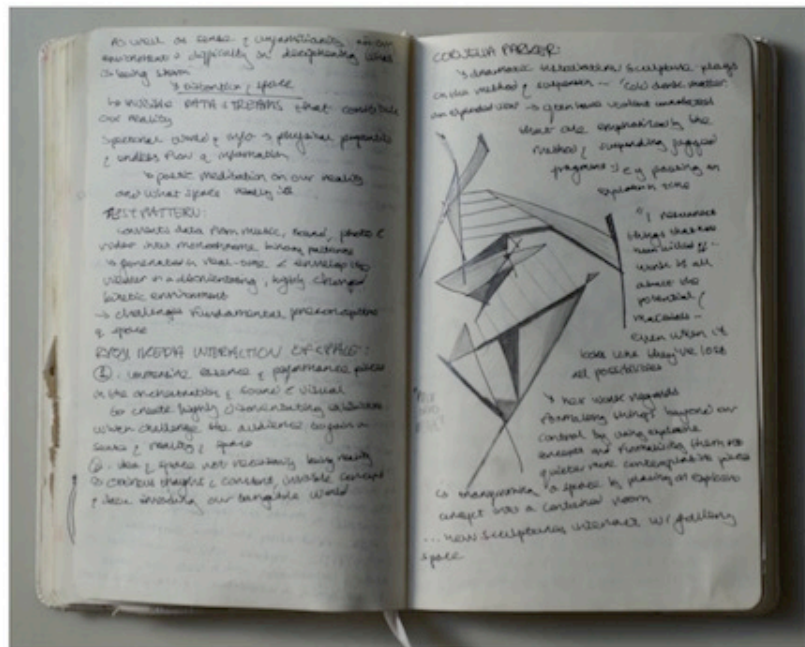 As well as sense & unfamiliarity
environment & difficulty in deciphering what
is being shown
↳ distortion & space
↳ invisible DATA STREAMS that constitute
our reality
& personal world & info → physical properties
& endless flow & information
↳ poetic meditation on our reality
and what space really is
TEST PATTERN:
converts data from music, sound, photo &
video into monochrome binary patterns
→ generated in real-time & envelop the
viewer in a disorientating, highly charged
kinetic environment
→ challenges fundamental preconceptions
& space
MEDIA INTERACTION OF SPACE:
① immersive essence & performance pieces
in the orchestration & sound & visual
to create highly disorientating exhibitions
which challenge the audience to gain a
sense & reality & space
② idea & space not necessarily being reality
& constant, invisible concept
& data invading our tangible world
CORNELIA PARKER:
↳ dramatic installation/sculpture - plays
on the method & suspension - "cold dark matter:
an expanded view" → often have violent
that are emphasized by the
method & suspending jagged
fragments → e.g. pausing an
explosion in time
"I resurrect
things that have
been killed off -
work is all
about the
potential &
materials -
even when it
looks like they've lost
all possibilities
↳ her work regards
formalising things beyond our
control by using explosive
concepts and formalising them into
quieter more contemplative pieces
↳ transforming a space by placing an explosive
concept into a contained room
... how sculptures interact w/ gallery
space